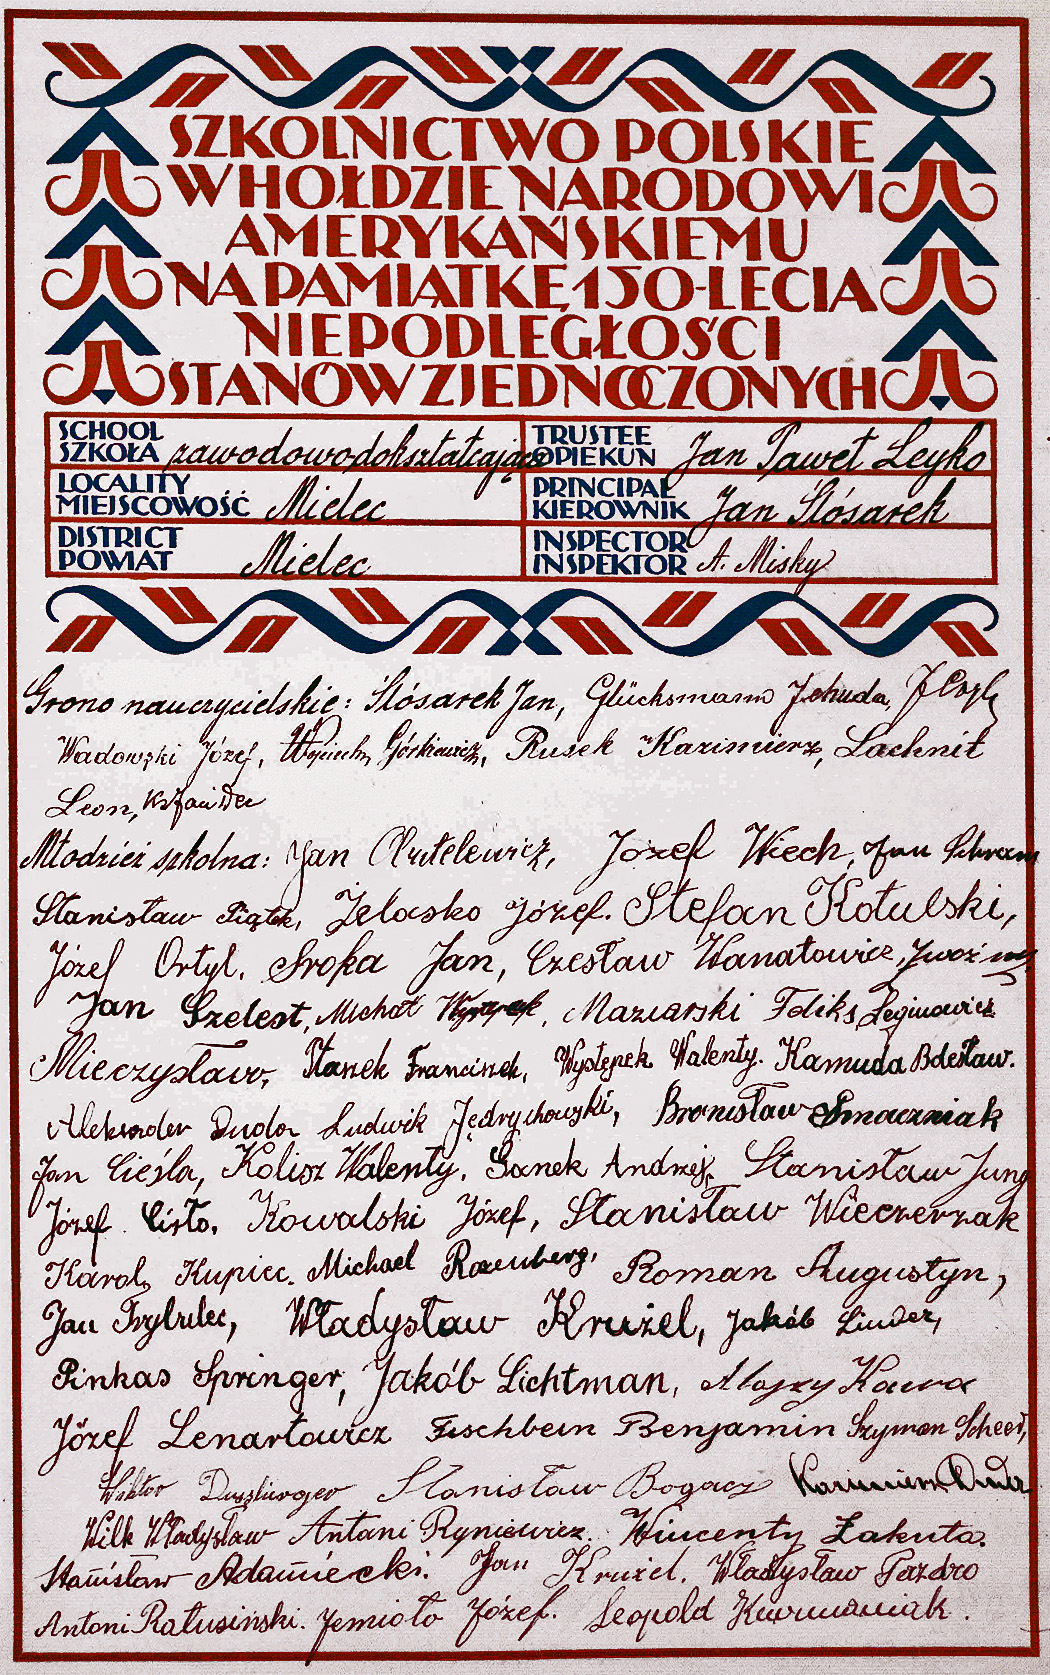 SZKOLNICTWO POLSKIE
W HOŁDZIE NARODOWI
AMERYKAŃSKIEMU
NA PAMIĄTKĘ 150-LECIA
NIEPODLEGŁOŚCI
STANÓW ZJEDNOCZONYCH
SCHOOL
SZKOŁA zawodowo dokształcająca
TRUSTEE
OPIEKUN Jan Paweł Leyko
LOCALITY
MIEJSCOWOŚĆ Mielec
PRINCIPAL
KIEROWNIK Jan Ślósarek
DISTRICT
POWIAT Mielec
INSPECTOR
INSPEKTOR A. Misky
Grono nauczycielskie: Ślósarek Jan, Glücksmann Jehuda,
Wadowski Józef, Wojciech Górkiewicz, Rusek Kazimierz, Lachnit
Leon,
Młodzież szkolna: Jan Józef Wiech, Jan Schram
Stanisław Piątek, Żelasko Józef. Stefan Kotulski,
Józef Ortyl, Sroka Jan, Czesław Wanatowicz,
Jan Szelest, Michał Maziarski Feliks Leginowicz
Mieczysław, Stasek Franciszek, Występek Walenty. Kamuda Bolesław.
Aleksander Duda Ludwik Jędrychowski, Bronisław Smaczniak
Jan Cieśla, Kolisz Walenty. Sanek Andrzej, Stanisław Jung
Józef Cisło. Kowalski Józef, Stanisław Wieczerzak
Karol Kupiec. Michael Rosenberg, Roman Augustyn,
Jan Władysław Krużel, Jakób Linder,
Pinkas Springer, Jakób Lichtman, Alojzy Kawa
Józef Lenartowicz Fischbein Benjamin Szymon Scheer,
Wiktor Stanisław Bogacz Kazimierz Duda
Wilk Władysław Antoni Ryniewicz. Wincenty Żakuta.
Stanisław Adamiecki. Jan Krużel. Władysław Pazdro
Antoni Ratusiński. Jemioło Józef. Leopold Kurmaniak.